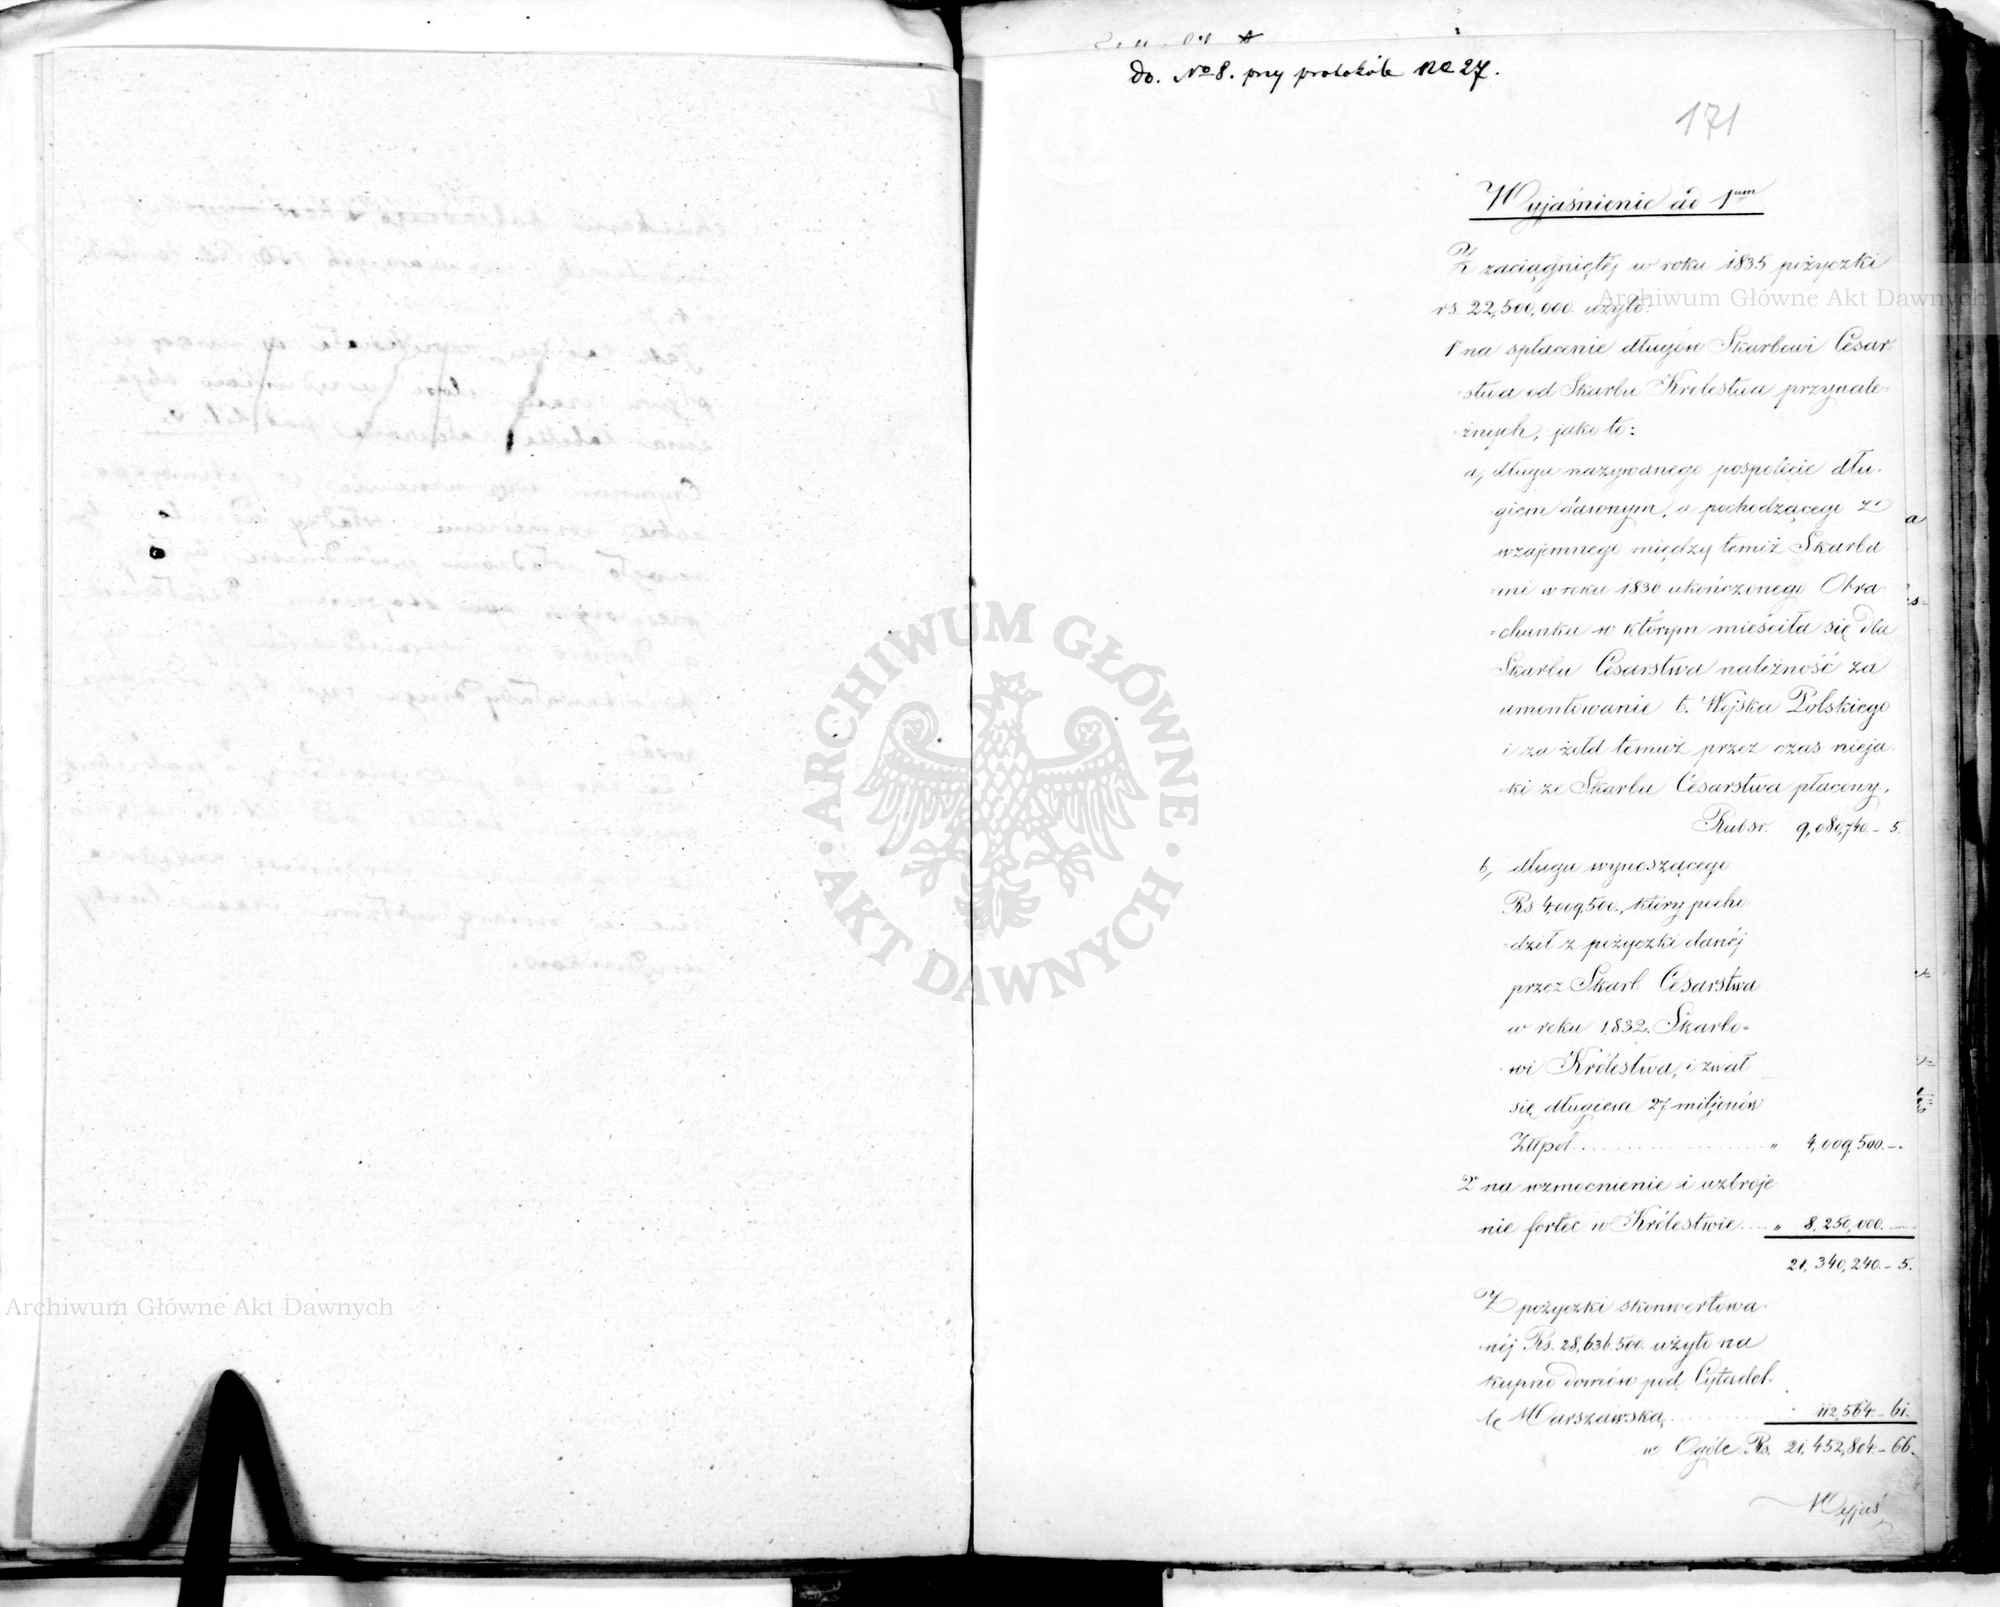 do. No 8. przy protokóle No 27.
171
Wyjaśnienie ad 1um
Z zaciągniętéj w roku 1835 pożyczki
rs. 22,500,000. użyto:
1o na spłacenie długów Skarbowi Cesar=
=stwa od Skarbu Królestwa przynale=
=żnych, jako to:
a, długu nazywanego pospolicie dłu=
=giem dawnym, a pochodzącego z
wzajemnego między temiż Skarba
=mi w roku 1830 ukończonego Obra=
=chunku w którym mieściła się dla
Skarbu Cesarstwa należność za
umontowanie b. Wojska Polskiego
i za żołd temuż przez czas nieja=
=ki ze Skarbu Cesarstwa płacony.
Rubsr. 9,080,740.– 5.
b, długu wynoszącego
Rs 4,009,500., który pocho
=dził z pożyczki danéj
przez Skarb Cesarstwa
w roku 1832. Skarbo=
=wi Królestwa, i zwał
się długiem 27 miljonów
Złłpol. " 4,009,500.–.
2o na wzmocnienie i uzbroje
nie fortec w Królestwie " 8,250,000.—
21,340,240.– 5.
Z pożyczki skonwertowa=
=néj Rs. 28,636,500. użyto na
kupno domów pod Cytadel=
lę Warszawską 112,564.– 61.
w Ogóle Rs. 21,452,804.– 66.
Wyjaś
Archiwum Główne Akt Dawnych
Archiwum Główne Akt Dawnych
ARCHIWUM GŁÓWNE
AKT DAWNYCH